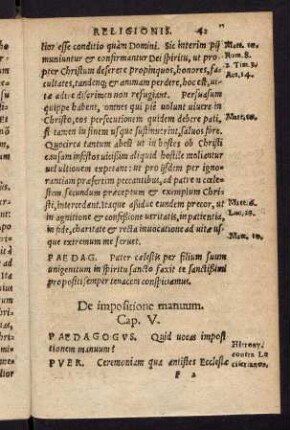 RELIGIONIS. 42
lior esse conditio quàm Domini. Sic interim pij
muniuntur & confirmantur Dei spiritu, ut pro
pter Christum deserere propinquos, honores, fa
cultates, tandemq; & animam perdere, hoc est, ui
tæ adire discrimen non refugiant. Persuasum
quippe habent, omnes qui piè uolunt uiuere in
Christo, eos persecutionem quidem debere pati,
si tamen in finem usque sustinuerint, saluos fore.
Quocirca tantum abest ut in hostes ob Christi
causam infestos uicissim aliquid hostile moliantur
uel ultionem expetant: ut pro ijsdem per igno-
rantiam præsertim peccantibus, ad patrem cœle-
stem secundum præceptum & exemplum Chri-
sti, intercedant. Itaque assidue eundem precor, ut
in agnitione & confessione ueritatis, in patientia,
in fide, charitate & recta inuocatione ad uitæ us-
que extremum me seruet.
PAEDAG. Pater cælestis per filium suum
unigenitum in spiritu sancto faxit te sanctissimi
propositi semper tenacem conspiciamus.
De impositione manuum.
Cap. V.
PAEDAGOGVS. Quid uocas imposi
tionem manuum?
PVER. Ceremoniam qua antistes Ecclesiæ
F 2
Matt. 10.
Rom. 8.
2 Tim. 3.
Act. 14.
Matt. 10.
Matt. 6.
Luc. 18.
Matt. 10.
Hierony.
contra Lu
ciferianos.